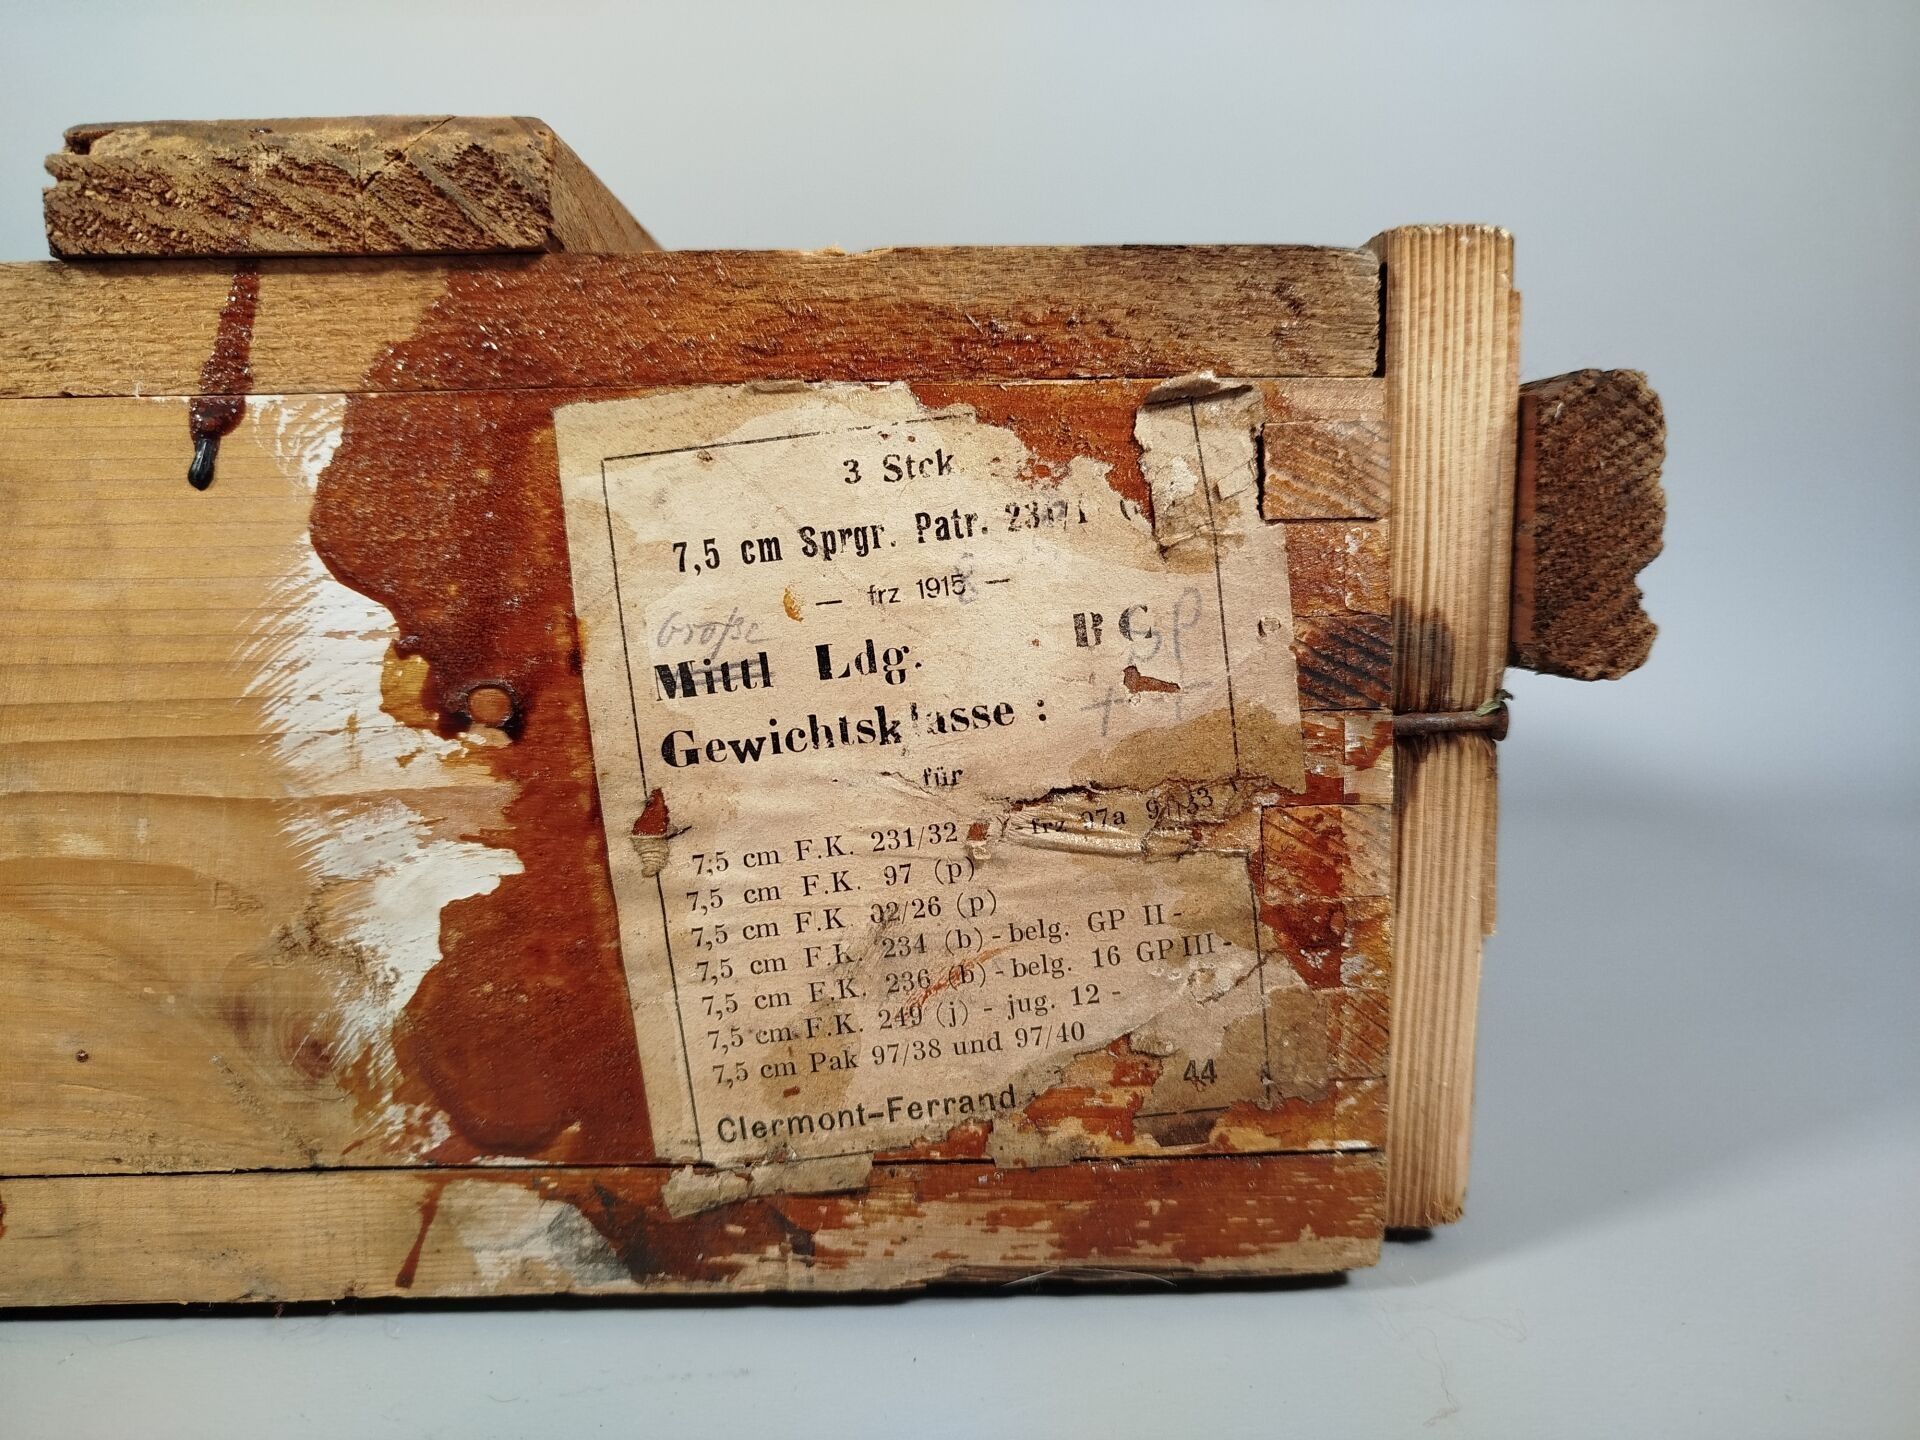 3 Stck.
7,5 cm Sprgr. Patr.
— frz 1915 —
Große
Mittl Ldg.
Gewichtsklasse :
für
7,5 cm F.K. 231/32 - frz 97a
7,5 cm F.K. 97 (p)
7,5 cm F.K 02/26 (p)
7,5 cm F.K. 234 (b) - belg. GP II -
7,5 cm F.K. 236 (b) - belg. 16 GP III -
7,5 cm F.K. 249 (j) - jug. 12 -
7,5 cm Pak 97/38 und 97/40
Clermont-Ferrand 44